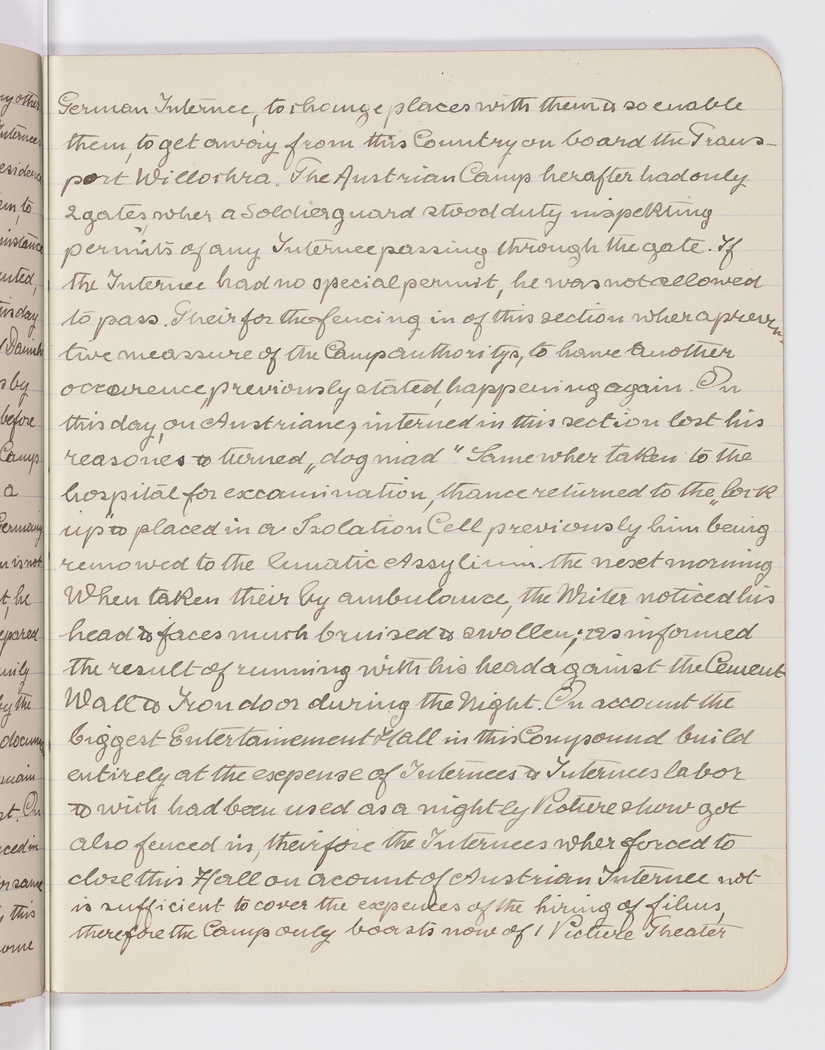 German Internee, to change places with them & so enable
them, to get away from this Country on board the Trans-
port Willochra. The Austrian Camp herafter had only
2 gates, wher a Soldierguard stood duty inspekting
permits of any Internee passing through the gate. If
the Internee had no special permit, he was not allowed
to pass. Their for the fencing in of this section wher a preven-
tive meassure of the Campauthoritys, to have another
occourence, previously stated, happening again. On
this day, on Austrianes, interned in this section lost his
reasones & turned "dog mad" Same wher taken to the
hospital for excamination, thance returned to the "lock
up" & placed in a Isolation Cell previously him being
removed to the lunatic Assylium. the next morning
When taken their by ambulance, the Writer noticed his
head & faces much bruised & swollen; as informed
the result of running with his head against the Cement
Wall & Iron door during the Night. On account the
biggest Entertainement Hall in this Compound build
entirely at the expense of Internees & Internees labor
& wich had been used as a nightly Picture show got
also fenced in, their fore the Internees wher forced to
close this Hall on acount of Austrian Internee not
is sufficient to cover the expences of the hiring of films,
therefore the Camp only boasts now of 1 Picture Theater